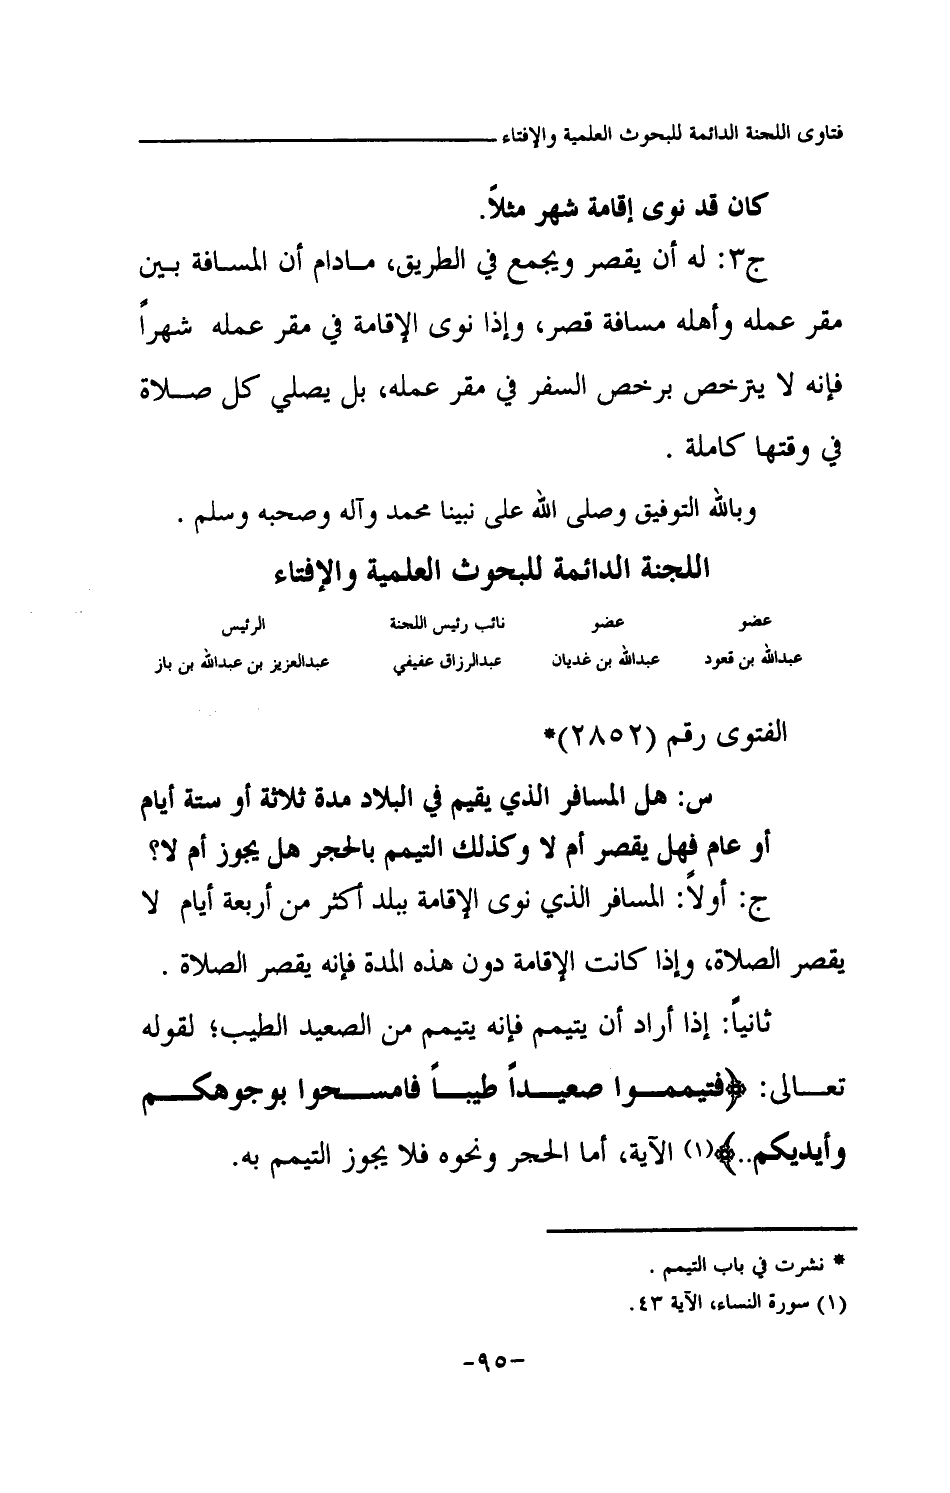 فتاوى اللجنة الدائمة للبحوث العلمية والإفتاء
كان قد نوى إقامة شهر مثلاً.
ج٣: له أن يقصر ويجمع في الطريق، مادام أن المسافة بين
مقر عمله وأهله مسافة قصر، وإذا نوى الإقامة في مقر عمله شهراً
فإنه لا يترخص برخص السفر في مقر عمله، بل يصلي كل صلاة
في وقتها كاملة .
وبالله التوفيق وصلى الله على نبينا محمد وآله وصحبه وسلم .
اللجنة الدائمة للبحوث العلمية والإفتاء
عضو عضو نائب رئيس اللجنة الرئيس
عبدالله بن قعود عبدالله بن غديان عبدالرزاق عفيفي عبدالعزيز بن عبدالله بن باز
الفتوى رقم (٢٨٥٢)*
س: هل المسافر الذي يقيم في البلاد مدة ثلاثة أو ستة أيام
أو عام فهل يقصر أم لا وكذلك التيمم بالحجر هل يجوز أم لا؟
ج: أولاً: المسافر الذي نوى الإقامة ببلد أكثر من أربعة أيام لا
يقصر الصلاة، وإذا كانت الإقامة دون هذه المدة فإنه يقصر الصلاة .
ثانياً: إذا أراد أن يتيمم فإنه يتيمم من الصعيد الطيب؛ لقوله
تعالى: ﴿فتيمموا صعيداً طيباً فامسحوا بوجوهكم
وأيديكم..﴾(١) الآية، أما الحجر ونحوه فلا يجوز التيمم به.
* نشرت في باب التيمم .
(١) سورة النساء، الآية ٤٣.
-٩٥-